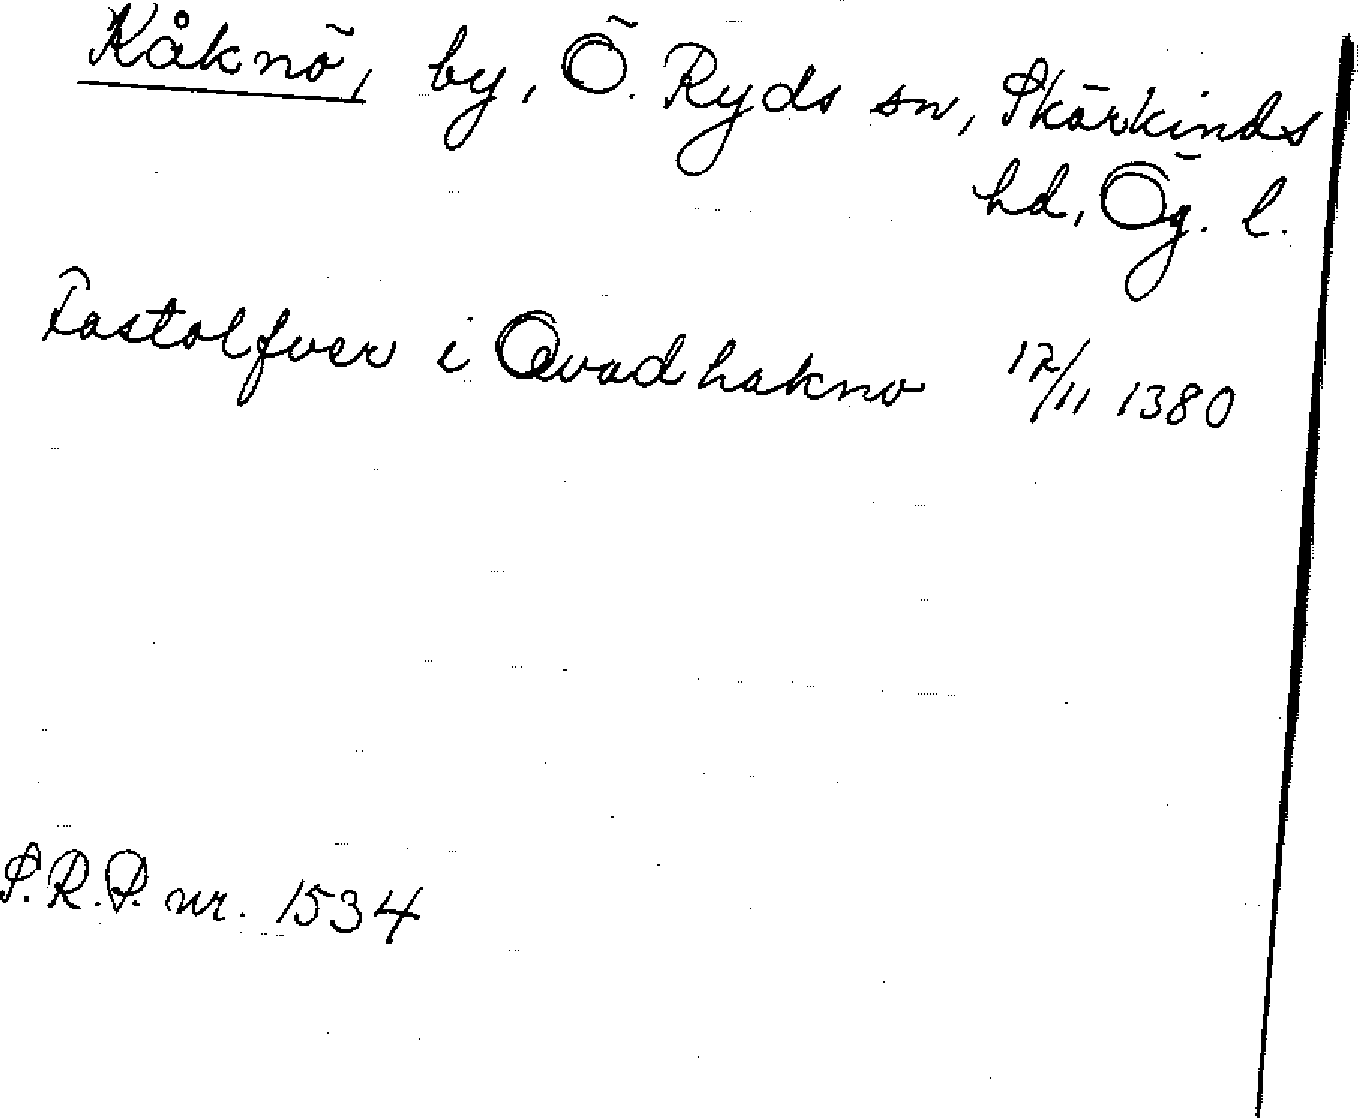 Kåknö, by, Ö. Ryds sn, Skärkinds
hd, Ög. l.
Fastolfuer i Qvadhakno 17/11 1380
S.R.P. nr. 1534